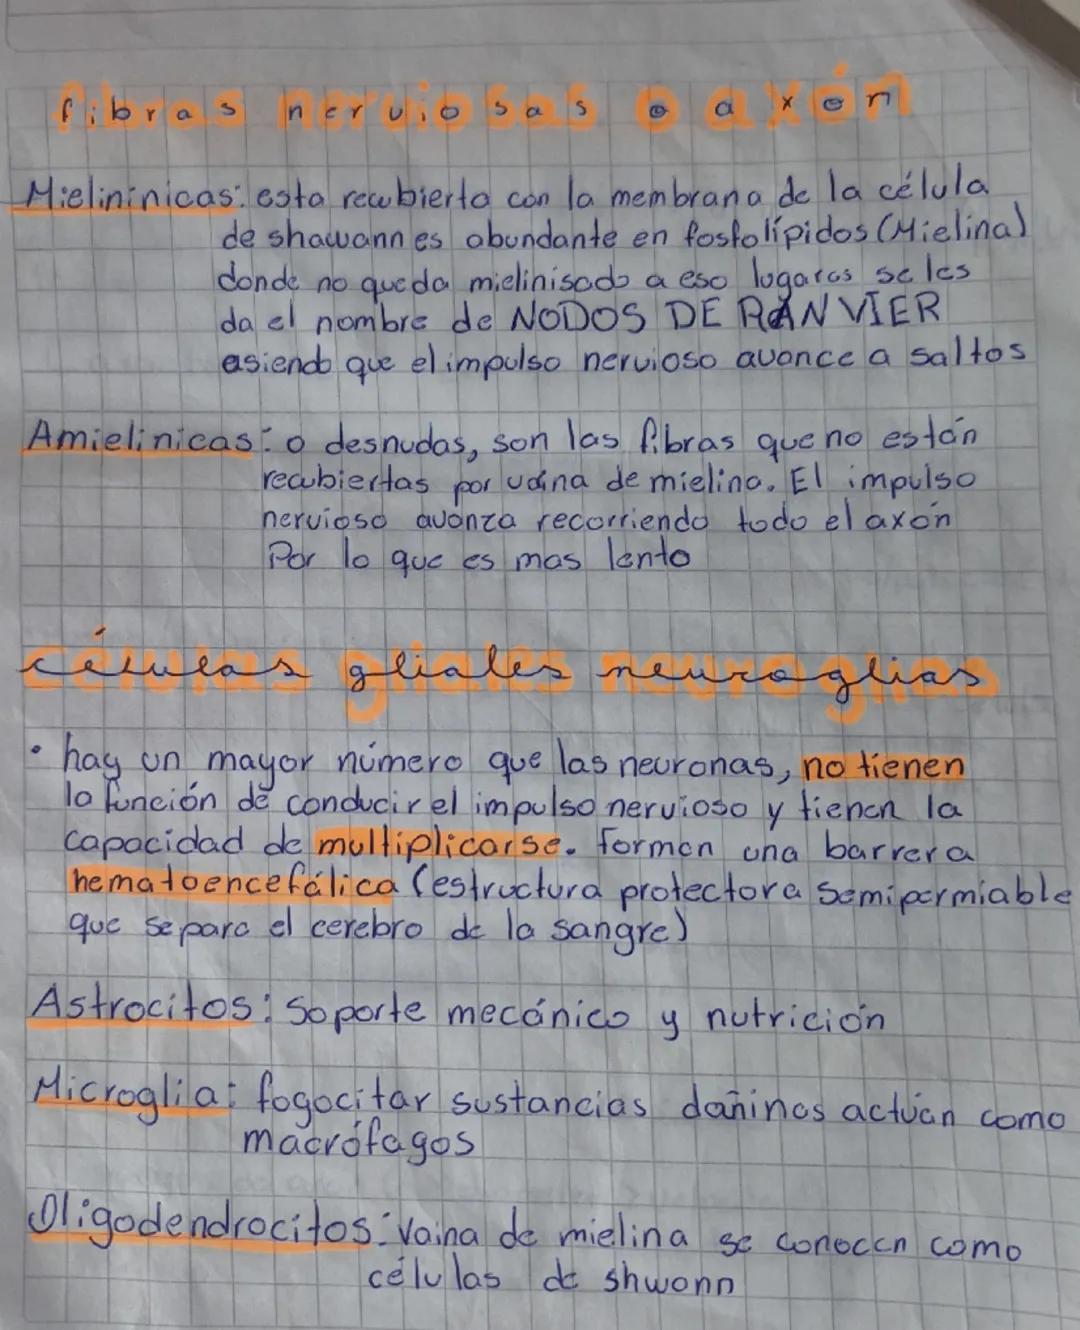 fibras nerviosas o axón
Mielinínicas: esta recubierta con la membrana de la célula
de shawann es abundante en fosfolípidos (Mielina)
donde no queda mielinisado a eso lugares se les
da el nombre de NODOS DE RANVIER
asiendo que el impulso nervioso avance a saltos
Amielinicas: o desnudas, son las fibras que no están
recubiertas por vaina de mielina. El impulso
nervioso avanza recorriendo todo el axón
Por lo que es mas lento
células gliales neuroglias
• hay un mayor número que las neuronas, no tienen
la función de conducir el impulso nervioso y tienen la
capacidad de multiplicarse. forman una barrera
hematoencefálica (estructura protectora semipermiable
que separa el cerebro de la sangre)
Astrocitos: Soporte mecánico y nutrición
Microglia: fogocitar sustancias dañinas actúan como
macrófagos
Oligodendrocitos: Vaina de mielina se conocen como
células de shwann